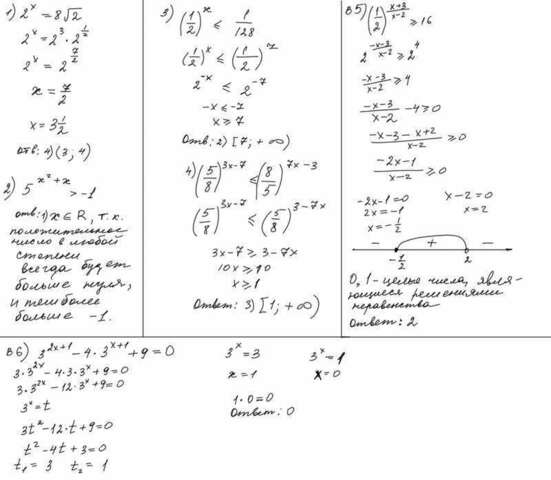 1) 2^x = 8√2
2^x = 2^3 · 2^(1/2)
2^x = 2^(7/2)
x = 7/2
x = 3 1/2
Отв: 4) (3; 4)
2) 5^(x^2+x) > -1
отв: 1) x ∈ R, т.к.
положительное
число в любой
степени
всегда будет
больше нуля,
и тем более
больше -1.
3) (1/2)^x ≤ 1/128
(1/2)^x ≤ (1/2)^7
2^(-x) ≤ 2^(-7)
-x ≤ -7
x ≥ 7
Отв: 2) [7; +∞)
4) (5/8)^(3x-7) ≤ (8/5)^(7x-3)
(5/8)^(3x-7) ≤ (5/8)^(3-7x)
3x-7 ≥ 3-7x
10x ≥ 10
x ≥ 1
Ответ: 3) [1; +∞)
В5) (1/2)^((x+3)/(x-2)) ≥ 16
2^((-x-3)/(x-2)) ≥ 2^4
(-x-3)/(x-2) ≥ 4
(-x-3)/(x-2) - 4 ≥ 0
(-x-3-x+2)/(x-2) ≥ 0
(-2x-1)/(x-2) ≥ 0
-2x-1=0 x-2=0
2x=-1 x=2
x=-1/2
- + -
-1/2 2
0, 1 - целые числа, явля-
ющиеся решениями
неравенства
Ответ: 2
В6) 3^(2x+1) - 4·3^(x+1) + 9 = 0
3·3^(2x) - 4·3·3^x + 9 = 0
3·3^(2x) - 12·3^x + 9 = 0
3^x = t
3t^2 - 12·t + 9 = 0
t^2 - 4t + 3 = 0
t₁ = 3 t₂ = 1
3^x = 3 3^x = 1
x = 1 x = 0
1·0=0
Ответ: 0